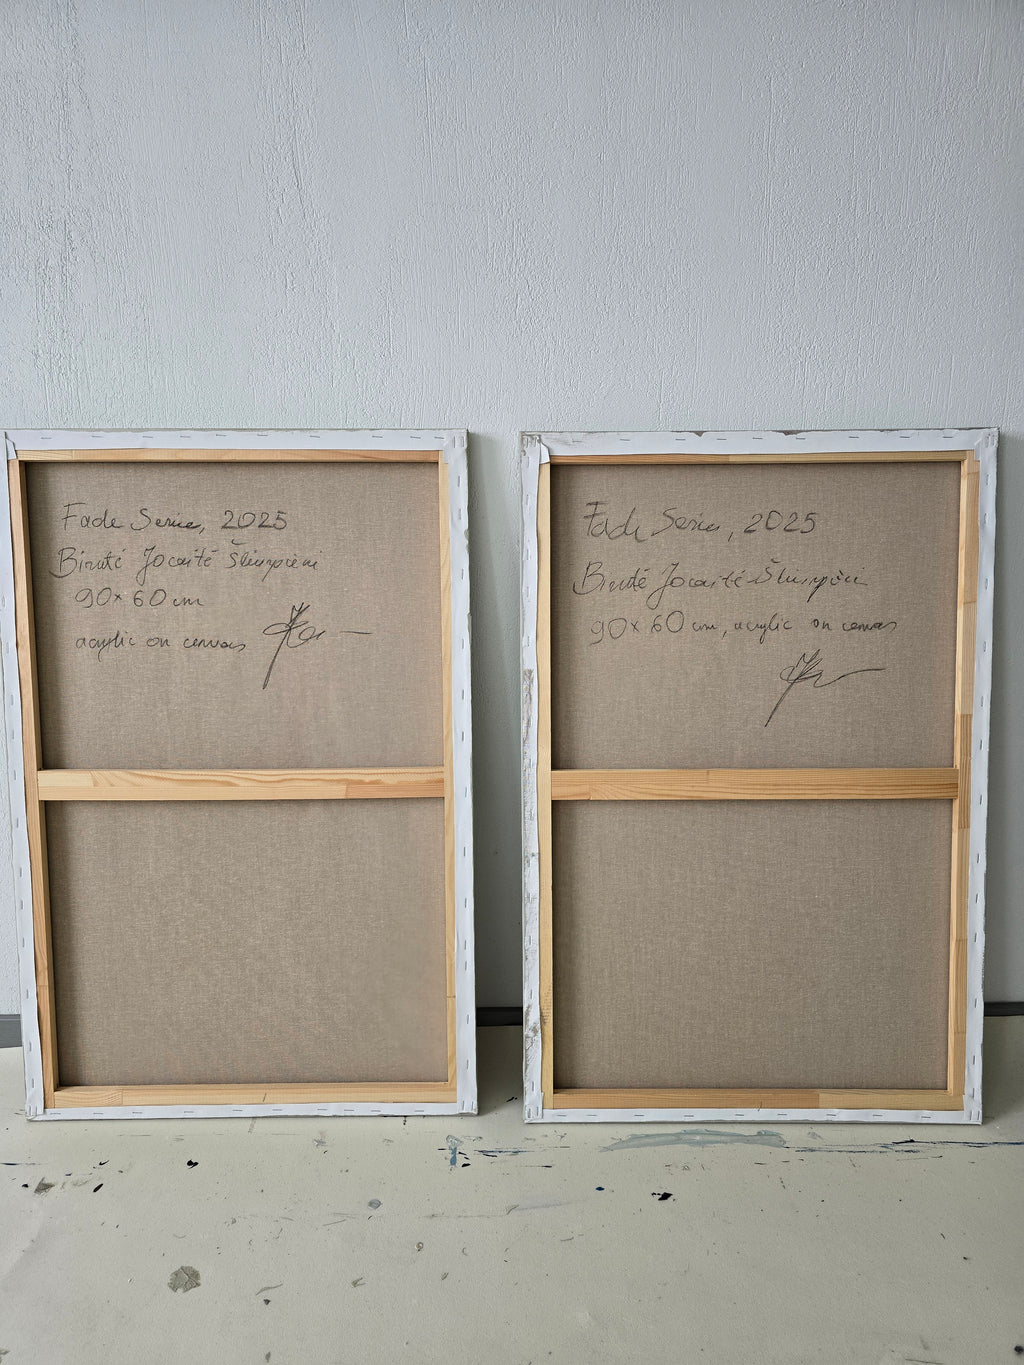 Fade Series, 2025
Birutė Jocaitė Šlimpienė
90x60 cm
acrylic on canvas
Fade Series, 2025
Birutė Jocaitė Šlimpienė
90x60 cm, acrylic on canvas